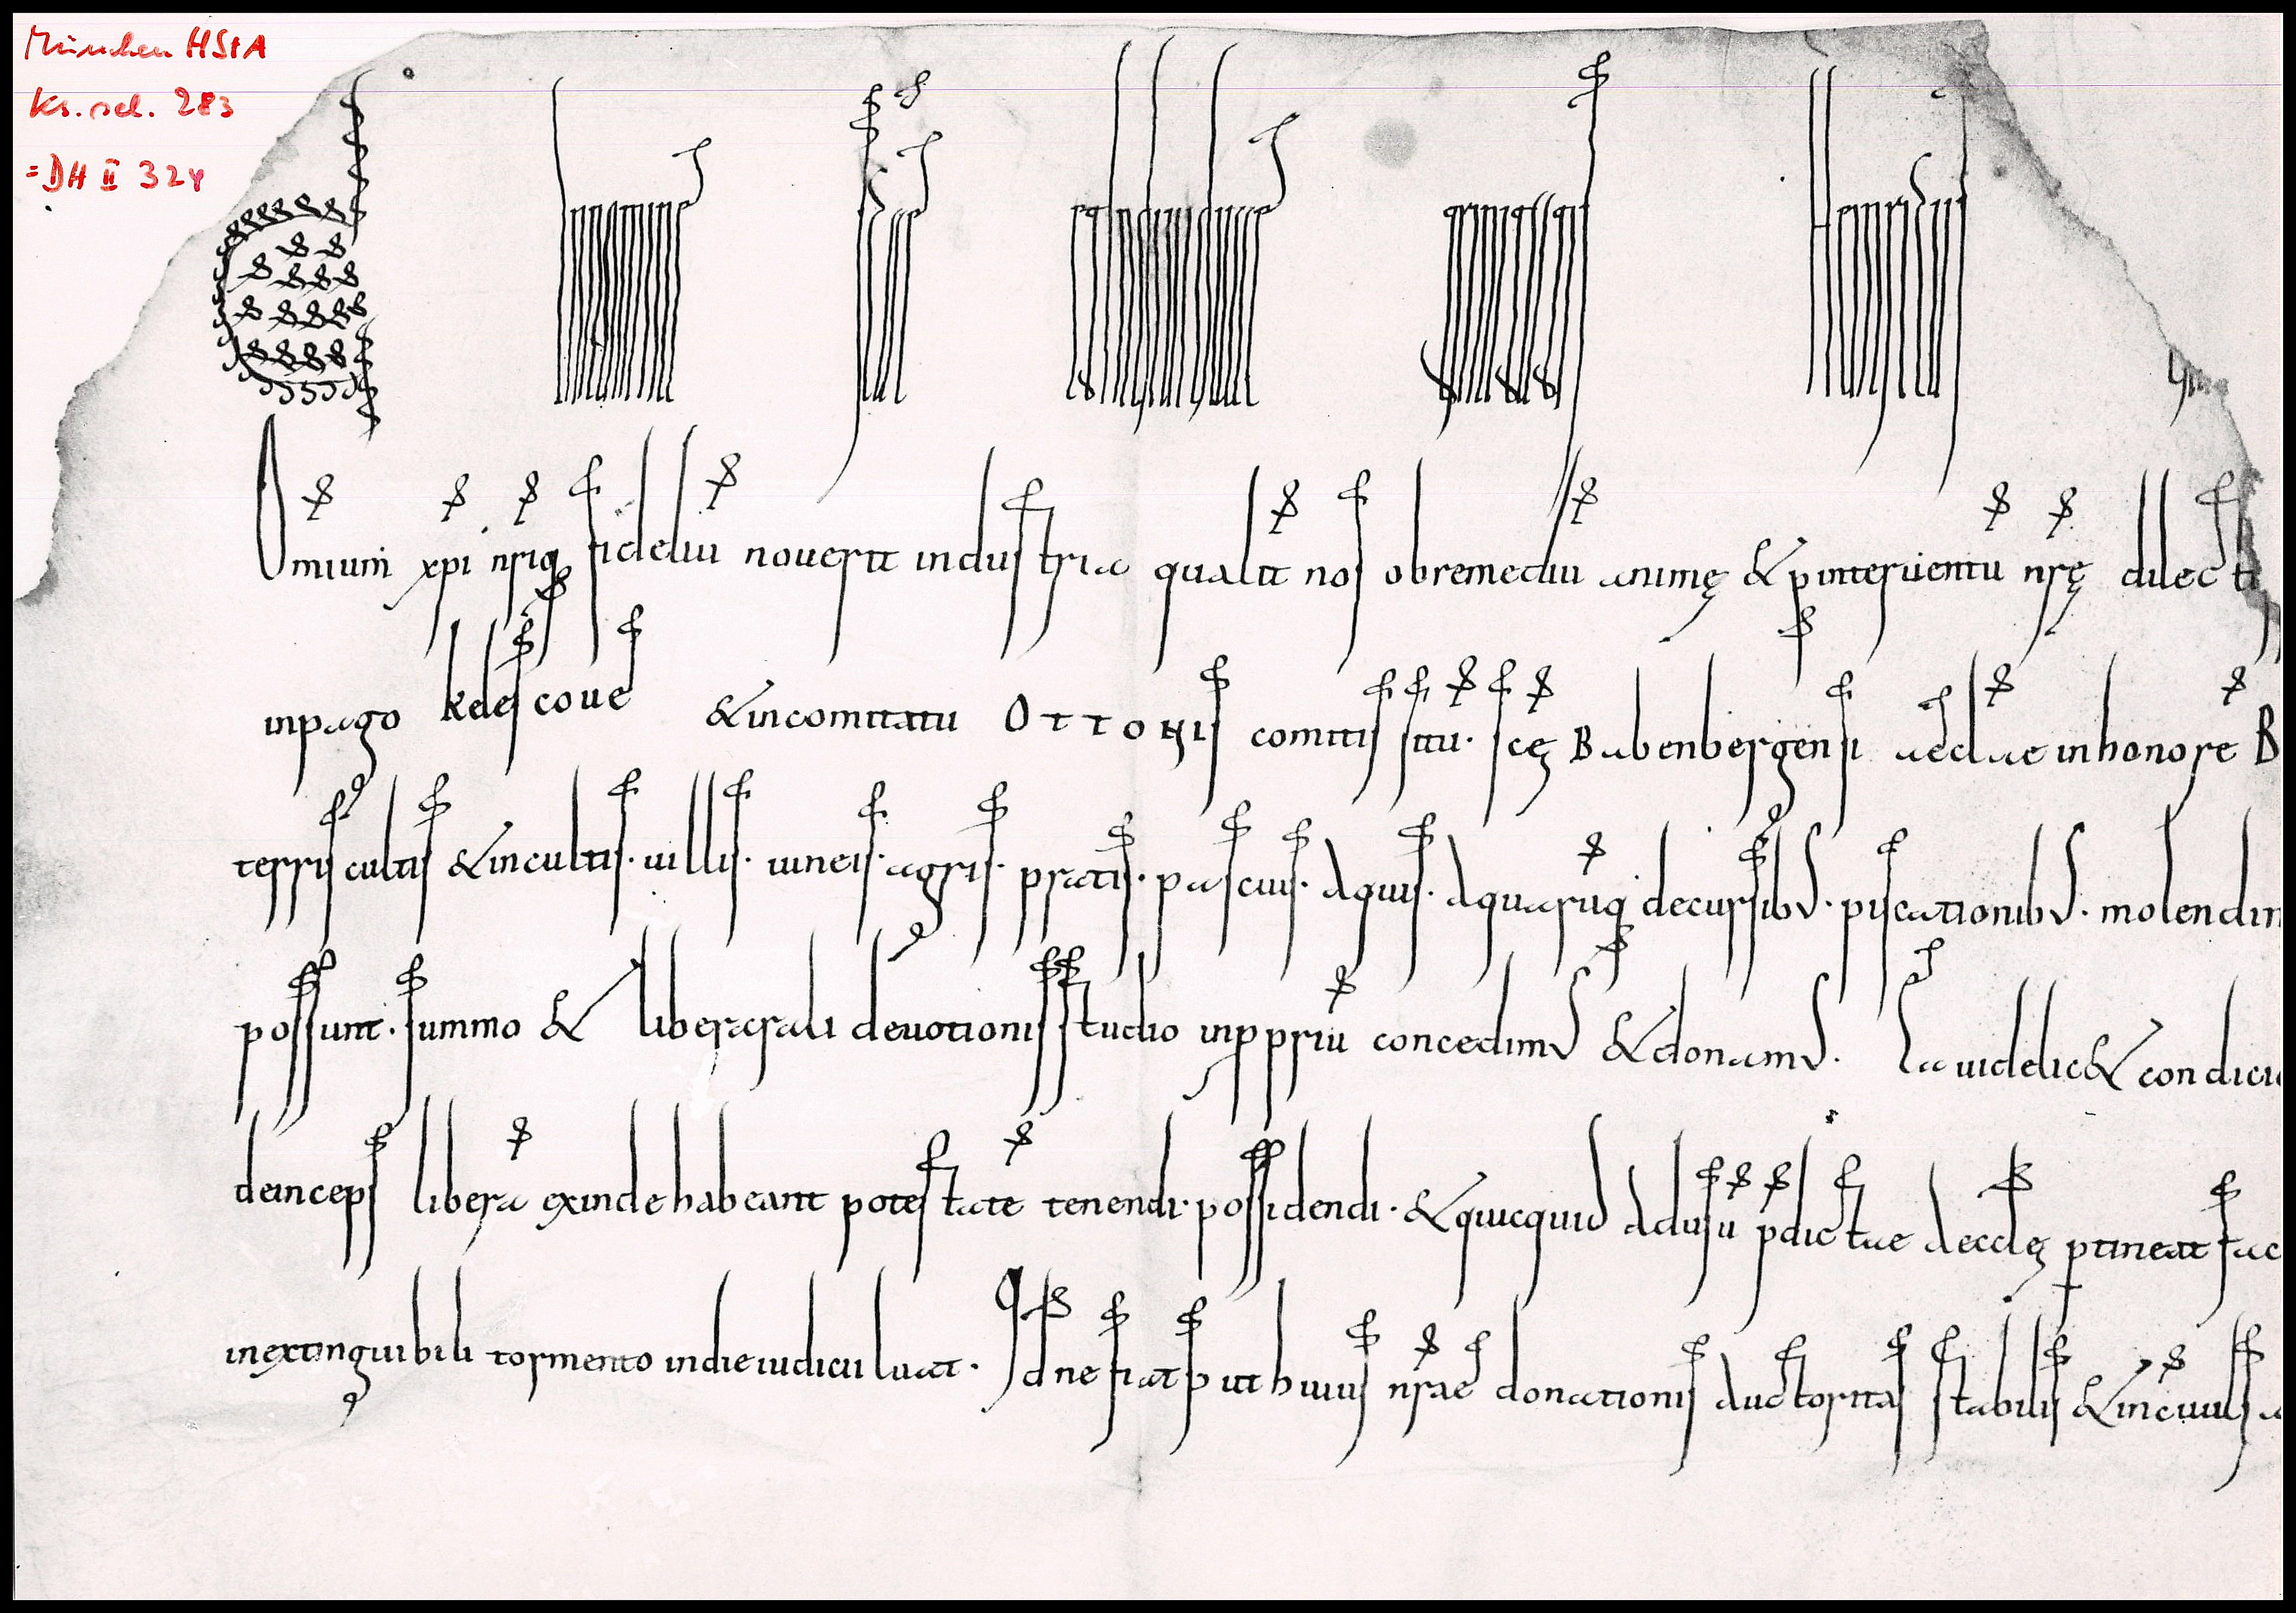 München HStA
Ks. sel. 283
= DH II 324
C In nomine sanctę et individuę Heinricus
Omium xpi nriq; fideliu noverit industria qualit nos ob remediu animę & p interventu nrę dilecti
in pago kelescoue & in comitatu OTTONIS comitis situ. scę Babenbergensi aecclae in honore B
terris cultis & incultis. uillis. uineis. agris. pratis. pascuis. Aquis. Aquarūq; decursib;. piscationib;. molendin
possunt. summo & liberarali deuotionis studio in ppriū concedim; & donam;. Ea uidelic& condici
deinceps libera exinde habeant potestate tenendi. possidendi. & quicquid Ad usū pdictae Aecclę ptineat fac
inextinguibili tormento in die iudicii luat. Qd ne fiat p ut huius nrae donationis Auctoritas stabilis & inconuulsa